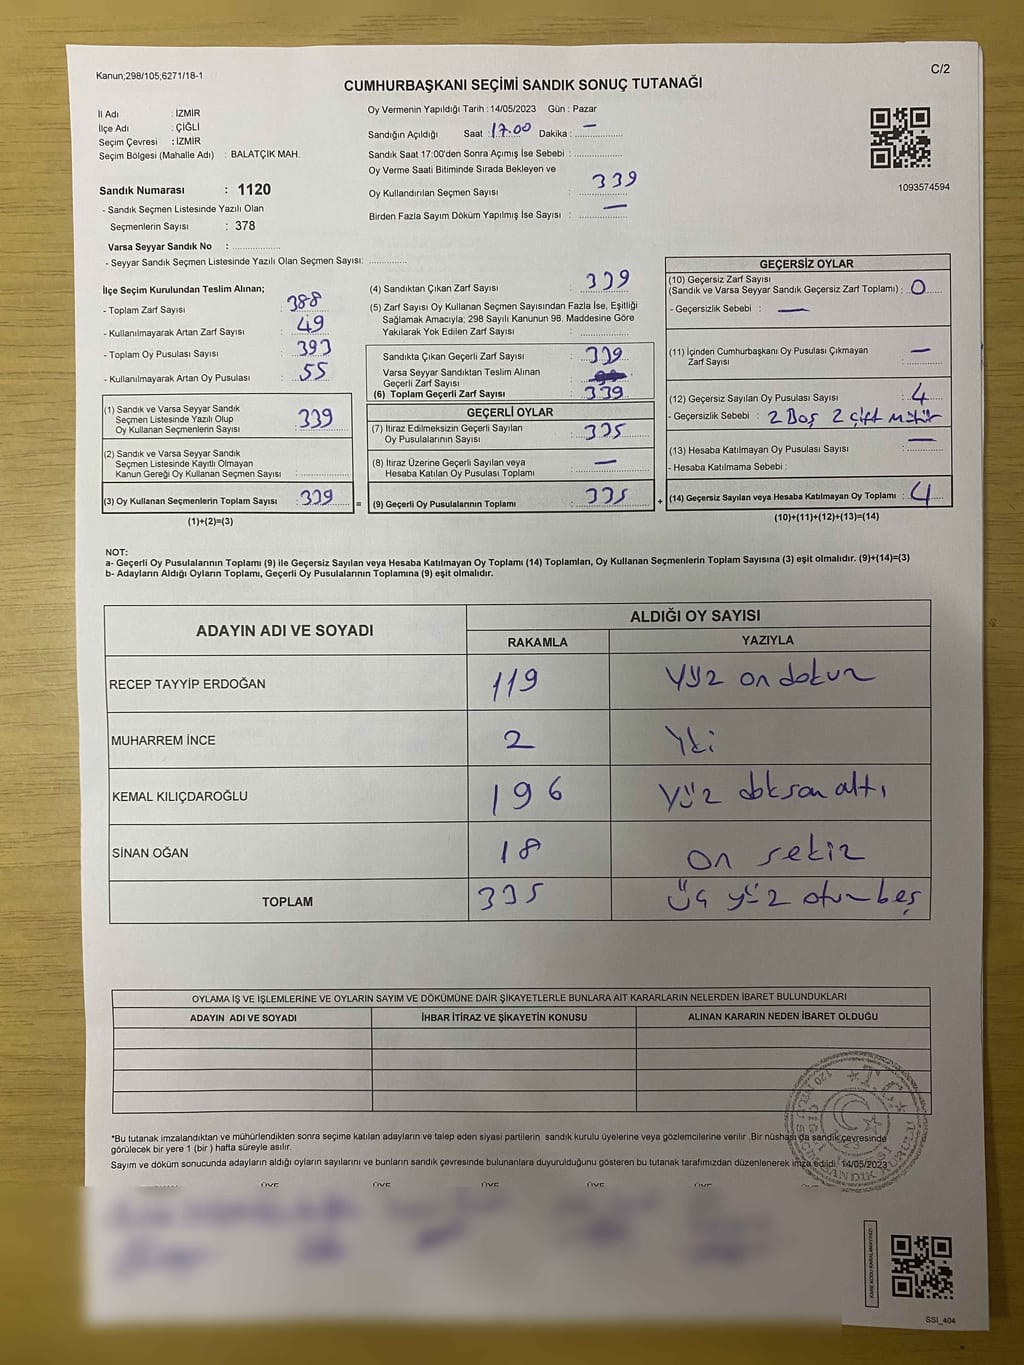 Kanun;298/105;6271/18-1
C/2
CUMHURBAŞKANI SEÇİMİ SANDIK SONUÇ TUTANAĞI
İl Adı : İZMİR
İlçe Adı : ÇİĞLİ
Seçim Çevresi : İZMİR
Seçim Bölgesi (Mahalle Adı) : BALATÇIK MAH.
Sandık Numarası : 1120
- Sandık Seçmen Listesinde Yazılı Olan
Seçmenlerin Sayısı : 378
Varsa Seyyar Sandık No : ..................
- Seyyar Sandık Seçmen Listesinde Yazılı Olan Seçmen Sayısı: ..............
Oy Vermenin Yapıldığı Tarih : 14/05/2023 Gün : Pazar
Sandığın Açıldığı Saat : 17.00 Dakika : —
Sandık Saat 17:00'den Sonra Açımış İse Sebebi : ..................
Oy Verme Saati Bitiminde Sırada Bekleyen ve
Oy Kullandırılan Seçmen Sayısı : 339
Birden Fazla Sayım Döküm Yapılmış İse Sayısı : —
1093574594
İlçe Seçim Kurulundan Teslim Alınan;
- Toplam Zarf Sayısı : 388
- Kullanılmayarak Artan Zarf Sayısı : 49
- Toplam Oy Pusulası Sayısı : 393
- Kullanılmayarak Artan Oy Pusulası : 55
(1) Sandık ve Varsa Seyyar Sandık
Seçmen Listesinde Yazılı Olup
Oy Kullanan Seçmenlerin Sayısı : 339
(2) Sandık ve Varsa Seyyar Sandık
Seçmen Listesinde Kayıtlı Olmayan
Kanun Gereği Oy Kullanan Seçmen Sayısı : ..................
(3) Oy Kullanan Seçmenlerin Toplam Sayısı : 339 =
(1)+(2)=(3)
(4) Sandıktan Çıkan Zarf Sayısı : 339
(5) Zarf Sayısı Oy Kullanan Seçmen Sayısından Fazla İse, Eşitliği
Sağlamak Amacıyla; 298 Sayılı Kanunun 98. Maddesine Göre
Yakılarak Yok Edilen Zarf Sayısı : ..................
Sandıkta Çıkan Geçerli Zarf Sayısı : 339
Varsa Seyyar Sandıktan Teslim Alınan
Geçerli Zarf Sayısı :
(6) Toplam Geçerli Zarf Sayısı : 339
GEÇERLİ OYLAR
(7) İtiraz Edilmeksizin Geçerli Sayılan
Oy Pusulalarının Sayısı : 335
(8) İtiraz Üzerine Geçerli Sayılan veya
Hesaba Katılan Oy Pusulası Toplamı : —
(9) Geçerli Oy Pusulalarının Toplamı : 335 +
GEÇERSİZ OYLAR
(10) Geçersiz Zarf Sayısı
(Sandık ve Varsa Seyyar Sandık Geçersiz Zarf Toplamı) : 0
- Geçersizlik Sebebi : —
(11) İçinden Cumhurbaşkanı Oy Pusulası Çıkmayan
Zarf Sayısı : —
(12) Geçersiz Sayılan Oy Pusulası Sayısı : 4
- Geçersizlik Sebebi : 2 Boş 2 çift mühür
(13) Hesaba Katılmayan Oy Pusulası Sayısı : —
- Hesaba Katılmama Sebebi :
(14) Geçersiz Sayılan veya Hesaba Katılmayan Oy Toplamı : 4
(10)+(11)+(12)+(13)=(14)
NOT:
a- Geçerli Oy Pusulalarının Toplamı (9) ile Geçersiz Sayılan veya Hesaba Katılmayan Oy Toplamı (14) Toplamları, Oy Kullanan Seçmenlerin Toplam Sayısına (3) eşit olmalıdır. (9)+(14)=(3)
b- Adayların Aldığı Oyların Toplamı, Geçerli Oy Pusulalarının Toplamına (9) eşit olmalıdır.
ADAYIN ADI VE SOYADI
ALDIĞI OY SAYISI
RAKAMLA YAZIYLA
RECEP TAYYİP ERDOĞAN 119 Yüz on dokuz
MUHARREM İNCE 2 Yki
KEMAL KILIÇDAROĞLU 196 Yüz doksan altı
SİNAN OĞAN 18 on sekiz
TOPLAM 335 üç yüz otuz beş
OYLAMA İŞ VE İŞLEMLERİNE VE OYLARIN SAYIM VE DÖKÜMÜNE DAİR ŞİKAYETLERLE BUNLARA AİT KARARLARIN NELERDEN İBARET BULUNDUKLARI
ADAYIN ADI VE SOYADI İHBAR İTİRAZ VE ŞİKAYETİN KONUSU ALINAN KARARIN NEDEN İBARET OLDUĞU
*Bu tutanak imzalandıktan ve mühürlendikten sonra seçime katılan adayların ve talep eden siyasi partilerin sandık kurulu üyelerine veya gözlemcilerine verilir .Bir nüshası da sandık çevresinde
görülecek bir yere 1 (bir ) hafta süreyle asılır.
Sayım ve döküm sonucunda adayların aldığı oyların sayılarını ve bunların sandık çevresinde bulunanlara duyurulduğunu gösteren bu tutanak tarafımızdan düzenlenerek imza edildi. 14/05/2023
ÜYE ÜYE ÜYE ÜYE ÜYE
T.C.
SSI_404